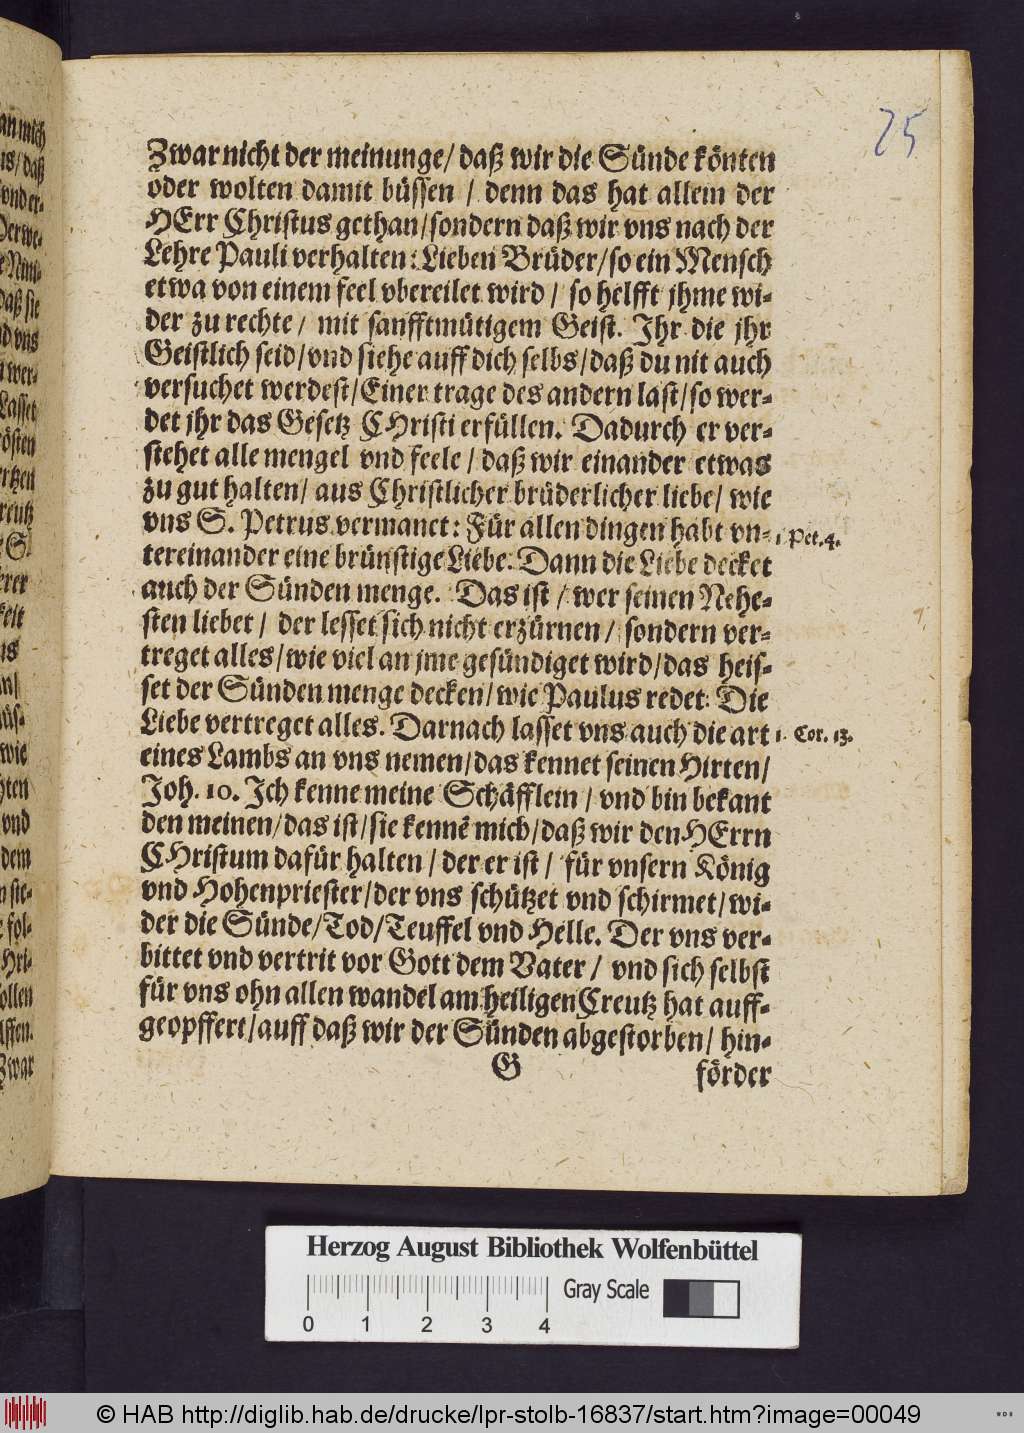 25
Zwar nicht der meinunge/ daß wir die Sünde könten
oder wolten damit büssen / denn das hat allein der
HErr Christus gethan/sondern daß wir vns nach der
Lehre Pauli verhalten: Lieben Brüder/so ein Mensch
etwa von einem feel vbereilet wird / so helfft jhme wi-
der zu rechte/ mit sanfftmütigem Geist. Jhr die jhr
Geistlich seid/vnd siehe auff dich selbs/daß du nit auch
versuchet werdest/Einer trage des andern last/so wer-
det jhr das Gesetz CHristi erfüllen. Dadurch er ver-
stehet alle mengel vnd feele/ daß wir einander etwas
zu gut halten/ aus Christlicher brüderlicher liebe/ wie
vns S. Petrus vermanet: Für allen dingen habt vn-
1. Pet. 4.
tereinander eine brünstige Liebe. Dann die Liebe decket
auch der Sünden menge. Das ist / wer seinen Nehe-
sten liebet/ der lesset sich nicht erzürnen/ sondern ver-
treget alles/wie viel an jme gesündiget wird/das heis-
set der Sünden menge decken/wie Paulus redet: Die
Liebe vertreget alles. Darnach lasset vns auch die art
1. Cor. 13.
eines Lambs an vns nemen/das kennet seinen Hirten/
Joh. 10. Jch kenne meine Schäfflein / vnd bin bekant
den meinen/das ist/sie kennē mich/daß wir den HErrn
CHristum dafür halten / der er ist / für vnsern König
vnd Hohenpriester/der vns schützet vnd schirmet/wi-
der die Sünde/Tod/Teuffel vnd Helle. Der vns ver-
bittet vnd vertrit vor Gott dem Vater / vnd sich selbst
für vns ohn allen wandel am heiligen Creutz hat auff-
geopffert/auff daß wir der Sünden abgestorben/ hin-
G
förder
Herzog August Bibliothek Wolfenbüttel
Gray Scale
0 1 2 3 4
© HAB http://diglib.hab.de/drucke/lpr-stolb-16837/start.htm?image=00049